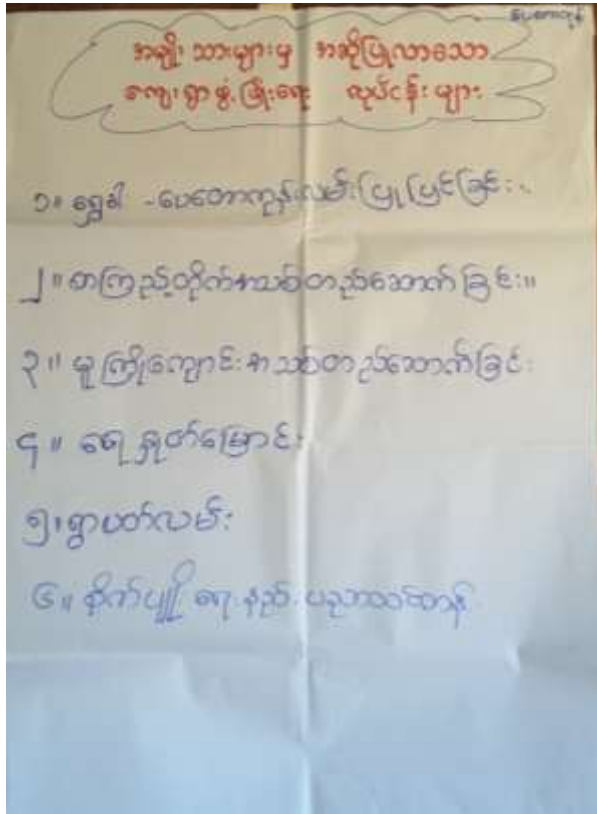 ပေတောကုန်
အမျိုးသားများမှ အဆိုပြုလာသော
ကျေးရွာဖွံ့ဖြိုးရေး လုပ်ငန်းများ
၁။ ရွှေခါ -ပေတောကုန်းလမ်းပြုပြင်ခြင်း
၂။ တကြည့်တိုက်အသစ်တည်ဆောက်ခြင်း။
၃။ မူကြိုကျောင်းအသစ်တည်ဆောက်ခြင်း
၄။ ရေနှုတ်မြောင်း
၅။ ရွာပတ်လမ်း
၆။ စိုက်ပျိုးရေးနည်းပညာသင်တန်